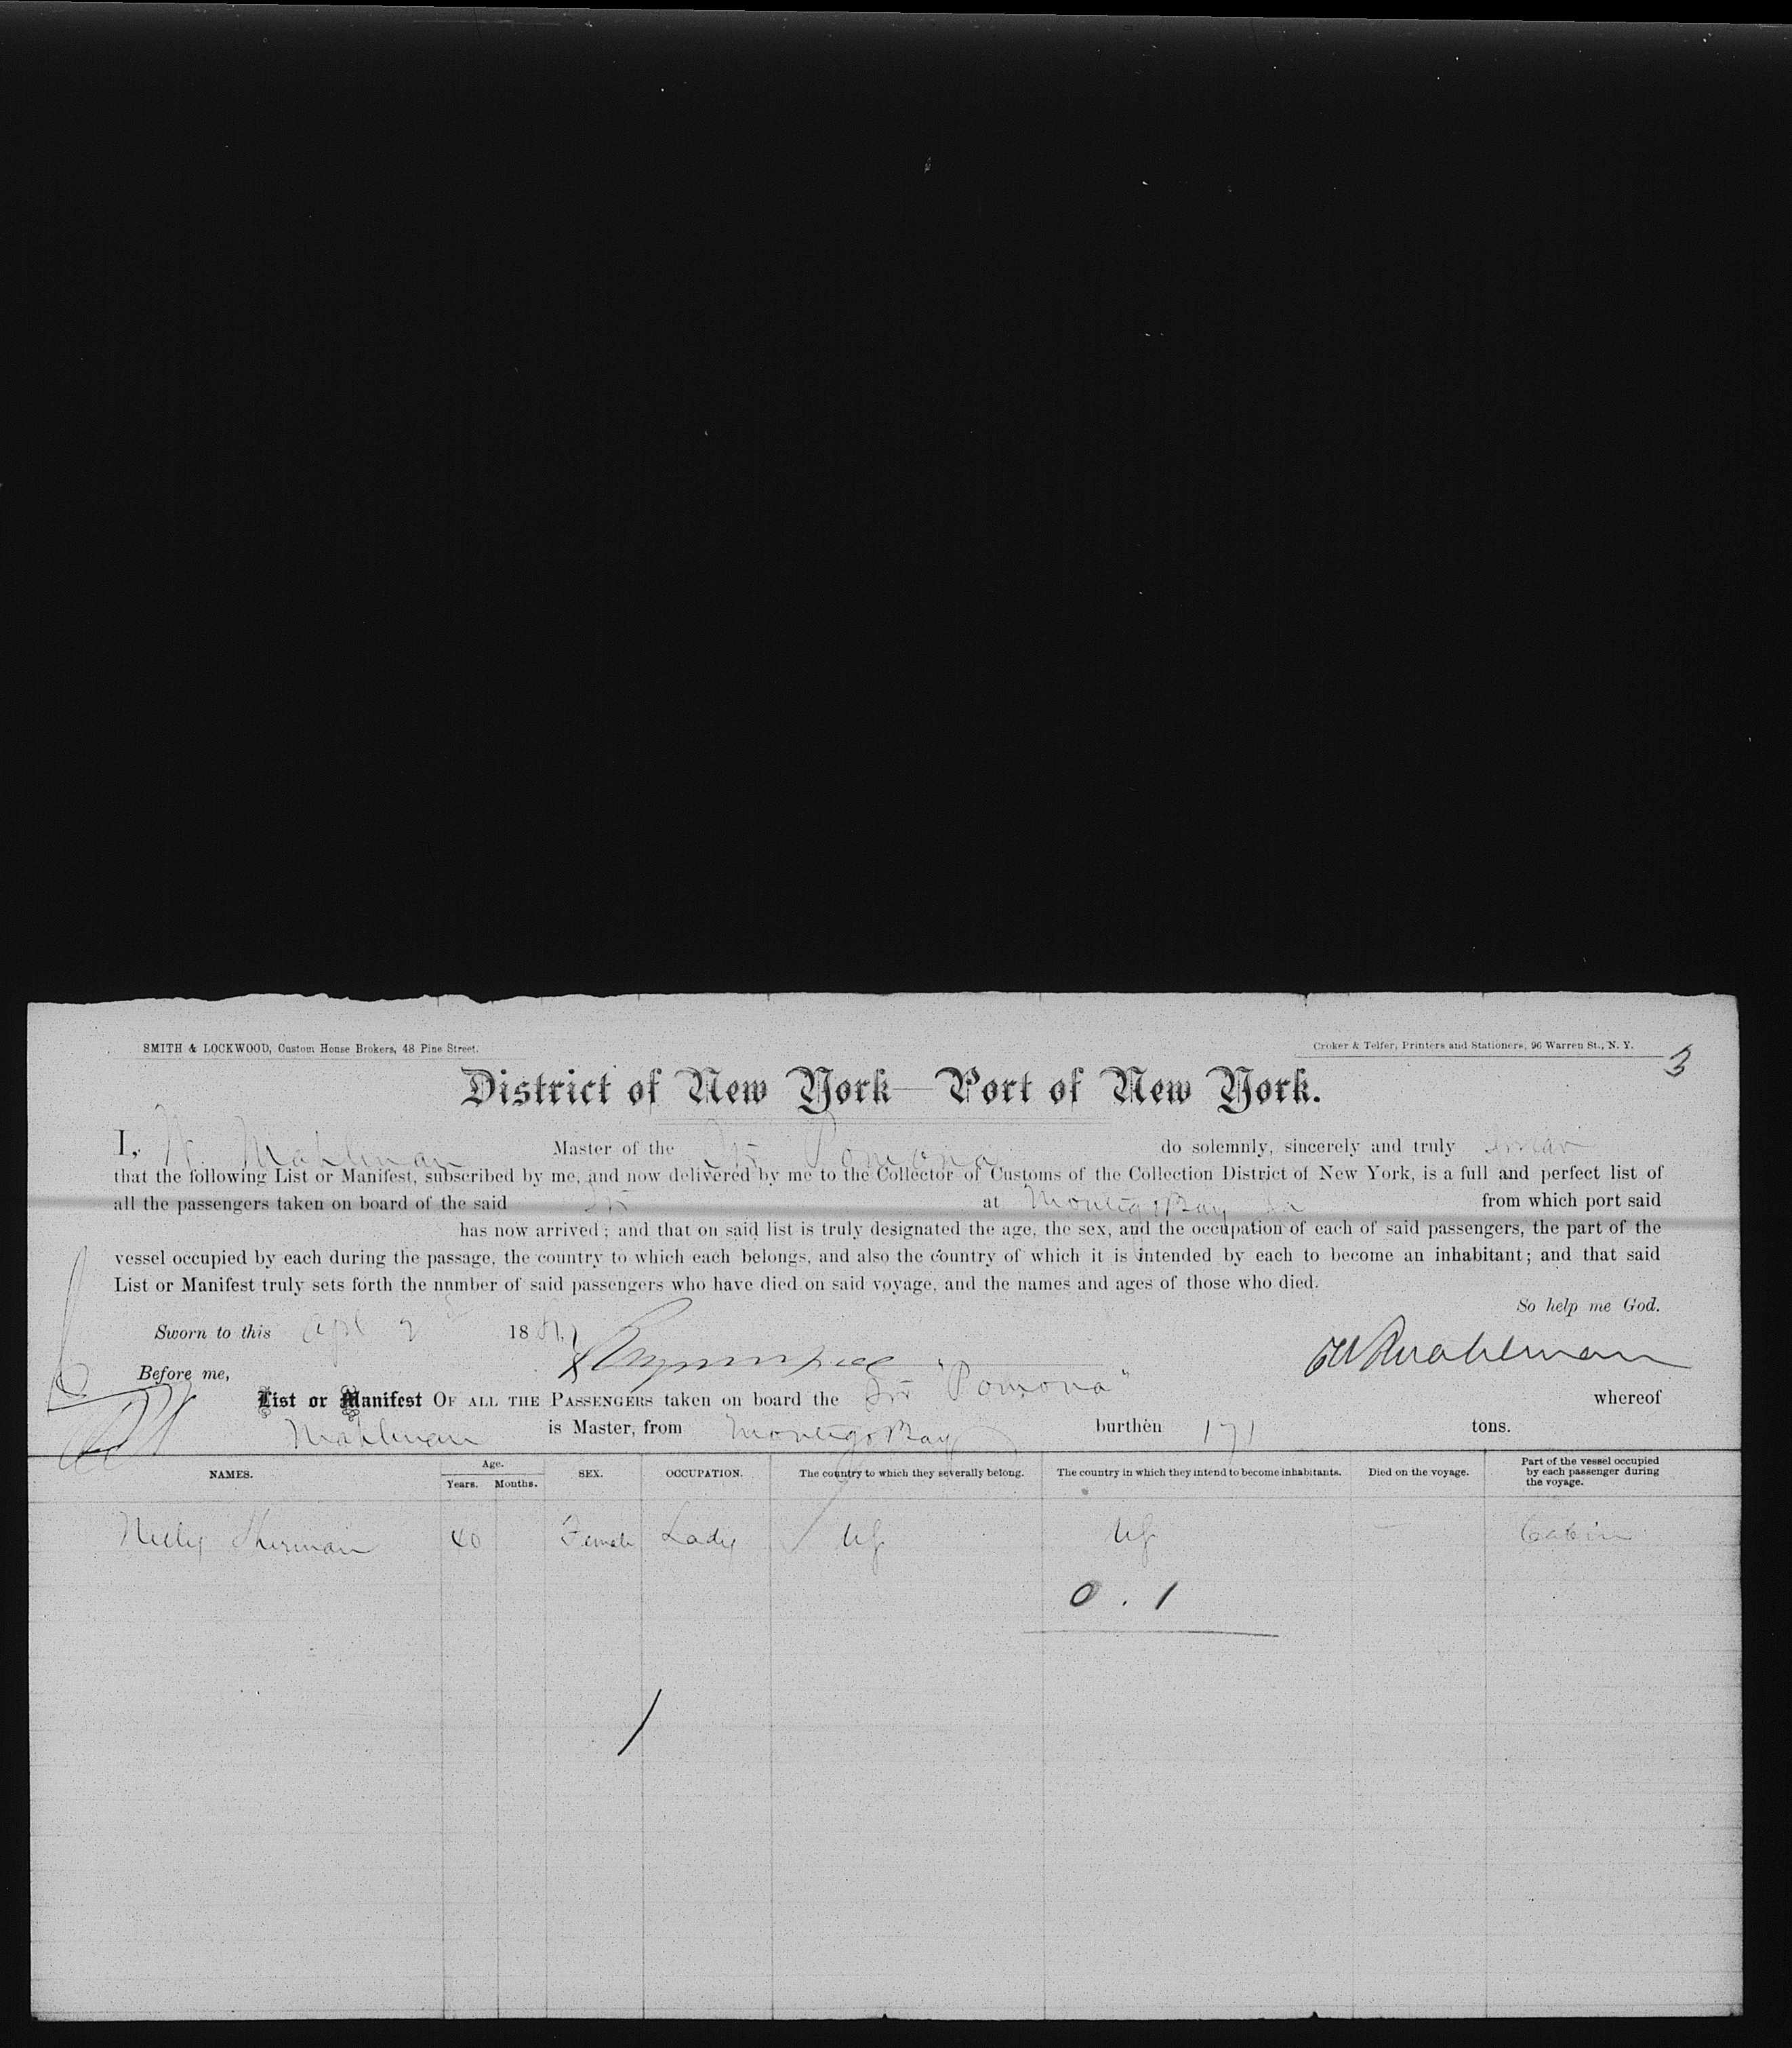 SMITH & LOCKWOOD, Custom House Brokers, 48 Pine Street.
Croker & Telfer, Printers and Stationers, 96 Warren St., N. Y.
3
District of New York—Port of New York.
I, W. Mahlman Master of the Str Pomona do solemnly, sincerely and truly swear
that the following List or Manifest, subscribed by me, and now delivered by me to the Collector of Customs of the Collection District of New York, is a full and perfect list of
all the passengers taken on board of the said Str at Montego Bay Ja from which port said
has now arrived; and that on said list is truly designated the age, the sex, and the occupation of each of said passengers, the part of the
vessel occupied by each during the passage, the country to which each belongs, and also the country of which it is intended by each to become an inhabitant; and that said
List or Manifest truly sets forth the number of said passengers who have died on said voyage, and the names and ages of those who died.
So help me God.
Sworn to this Apl 2 18
Before me, Mahlman
List or Manifest OF ALL THE PASSENGERS taken on board the Str "Pomona" whereof
Mahlman is Master, from Montego Bay burthen 171 tons.
NAMES. Age. Years. Months. SEX. OCCUPATION. The country to which they severally belong. The country in which they intend to become inhabitants. Died on the voyage. Part of the vessel occupied by each passenger during the voyage.
Nelly Sherman 40 Female Lady US US Cabin
0 . 1
/